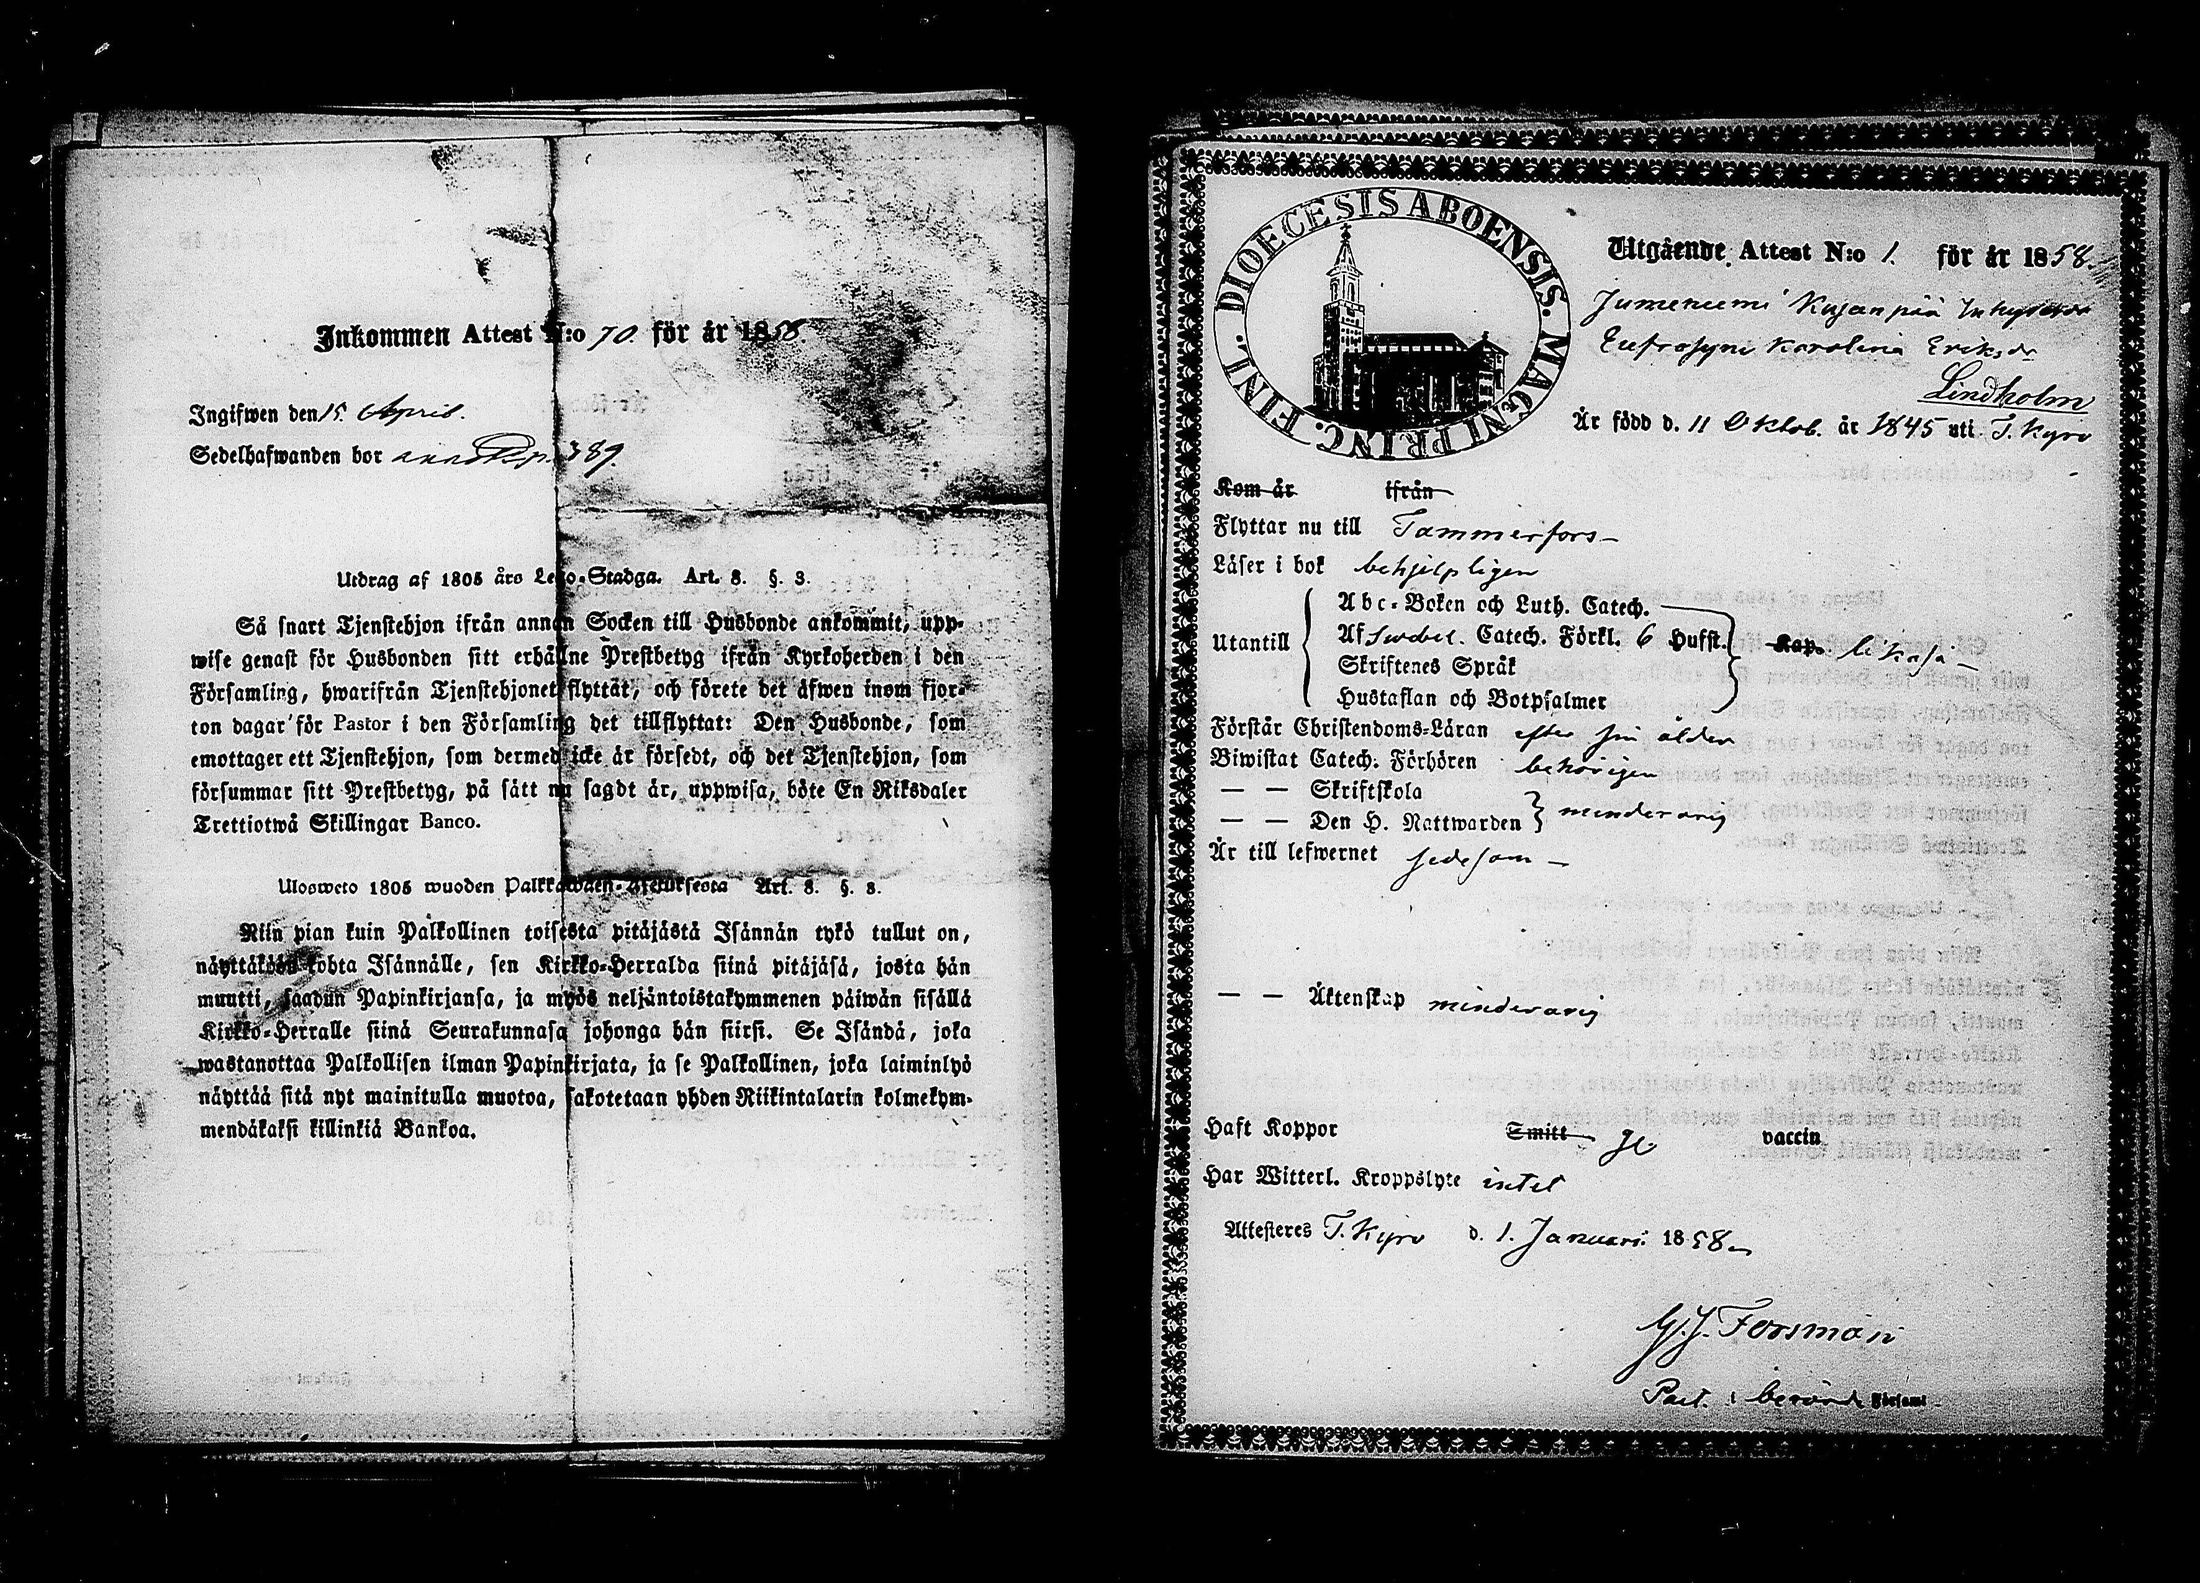 Inkommen Attest N:o 70. för år 1858.
Ingifwen den 15. April.
Sedelhafwanden bor 389.
Utdrag af 1805 års Lego-Stadga. Art. 3. §. 3.
Så snart Tjenstehjon ifrån annan Socken till Husbonde ankommit, upp-
wise genast för Husbonden sitt erhållne Prestbetyg ifrån Kyrkoherden i den
Församling, hwarifrån Tjenstehjonet flyttat, och förete det äfwen inom fjor-
ton dagar för Pastor i den Församling det tillflyttat: Den Husbonde, som
emottager ett Tjenstehjon, som dermed icke är försedt, och det Tjenstehjon, som
försummar sitt Prestbetyg, på sätt nu sagdt är, uppwisa, böte En Riksdaler
Trettiotwå Skillingar Banco.
Ulosweto 1805 wuoden Palkkawäen-Asetuksesta Art. 3. §. 3.
Niin pian kuin Palkollinen toisesta pitäjästä Isännän tykö tullut on,
näyttäköön kohta Isännälle, sen Kirkko-Herralda siinä pitäjäsä, josta hän
muutti, saadun Papinkirjansa, ja myös neljäntoistakymmenen päiwän sisällä
Kirkko-Herralle siinä Seurakunnasa johonga hän siirsi. Se Isändä, joka
wastanottaa Palkollisen ilman Papinkirjata, ja se Palkollinen, joka laiminlyö
näyttää sitä nyt mainitulla muotoa, sakotetaan yhden Riikintalarin kolmekym-
mendäkaksi killinkiä Bankoa.
DIOECESIS ABOENSIS. MAGNI PRINC. FINL.
Utgående Attest N:o 1. för år 1858.
Jumenemi Kujanpää Inhyses
Eufrosyne Karolina Eriksdr
Lindholm
Är född d. 11 Oktob. år 1845 uti T. Kyro
Kom år ifrån
Flyttar nu till Tammerfors
Läser i bok behjelpligen
Utantill Abc-Boken och Luth. Catech.
Af Swebel. Catech. Förkl. 6 Hufst. Kap. likaså
Skriftenes Språk
Hustaflan och Botpsalmer
Förstår Christendoms-Läran efter sin ålder
Biwistat Catech. Förhören behörigen
— — Skriftskola
— — Den H. Nattwarden minderårig
Är till lefwernet sedesam
— — Äktenskap minderårig
Haft Koppor Smitt ge vaccin
Har Witterl. Kroppslyte intet
Attesteres T. Kyro d. 1. Januari 1858
G. J. Forsman
Past. i berörde Församl.